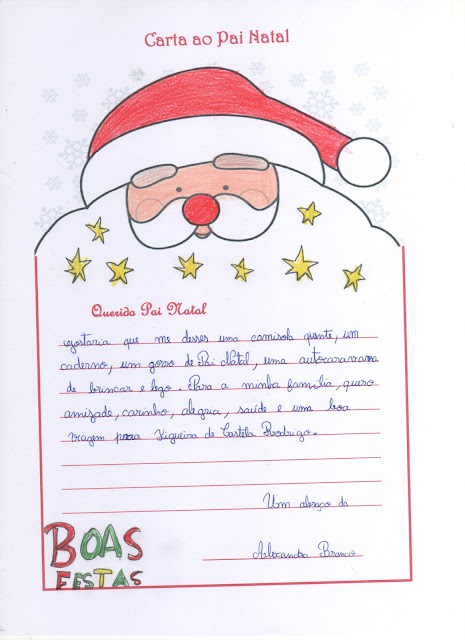 Carta ao Pai Natal
Querido Pai Natal
gostaria que me desses uma camisola quente, um
caderno, um gorro de Pai Natal, uma autocaravana
de brincar e lego. Para a minha família, quero
amizade, carinho, alegria, saúde e uma boa
viagem para Figueira de Castelo Rodrigo.
Um abraço da
Alexandra Branco
BOAS
FESTAS